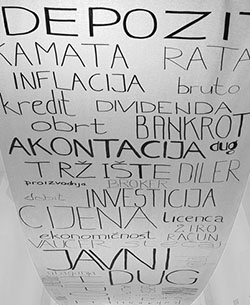 DEPOZI
KAMATA RATA
INFLACIJA bruto
kredit DIVIDENDA
obrt BANKROT
AKONTACIJA dug
TRŽIŠTE DILER
proizvodnja BROKER
debit INVESTICIJA
CIJENA licenca
ekonomičnost ŽIRO
VAUČER RAČUN
JAVNI
DUG